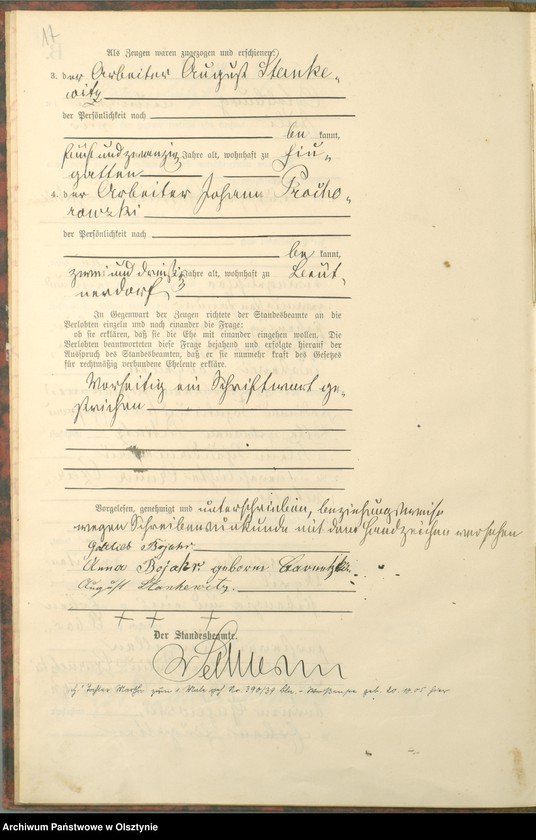 17
Als Zeugen waren zugezogen und erschienen:
3. der Arbeiter August Stanke-
witz
der Persönlichkeit nach
be kannt,
fünfundzwanzig Jahre alt, wohnhaft zu
gatten
4. der Arbeiter Johann Procho-
rowski
der Persönlichkeit nach
be kannt,
zweiunddreißig Jahre alt, wohnhaft zu Leut-
nerdorf
In Gegenwart der Zeugen richtete der Standesbeamte an die
Verlobten einzeln und nach einander die Frage:
ob sie erklären, daß sie die Ehe mit einander eingehen wollen. Die
Verlobten beantworteten diese Frage bejahend und erfolgte hierauf der
Ausspruch des Standesbeamten, daß er sie nunmehr kraft des Gesetzes
für rechtmäßig verbundene Eheleute erkläre.
Vorseitig ein Schriftwort ge-
strichen
Vorgelesen, genehmigt und unterschrieben, beziehungsweise
wegen Schreibensunkunde mit dem Handzeichen versehen
Gottlieb Bojahr
Anna Bojahr geborene
August Stankewitz.
+ + +
Der Standesbeamte.
Archiwum Państwowe w Olsztynie